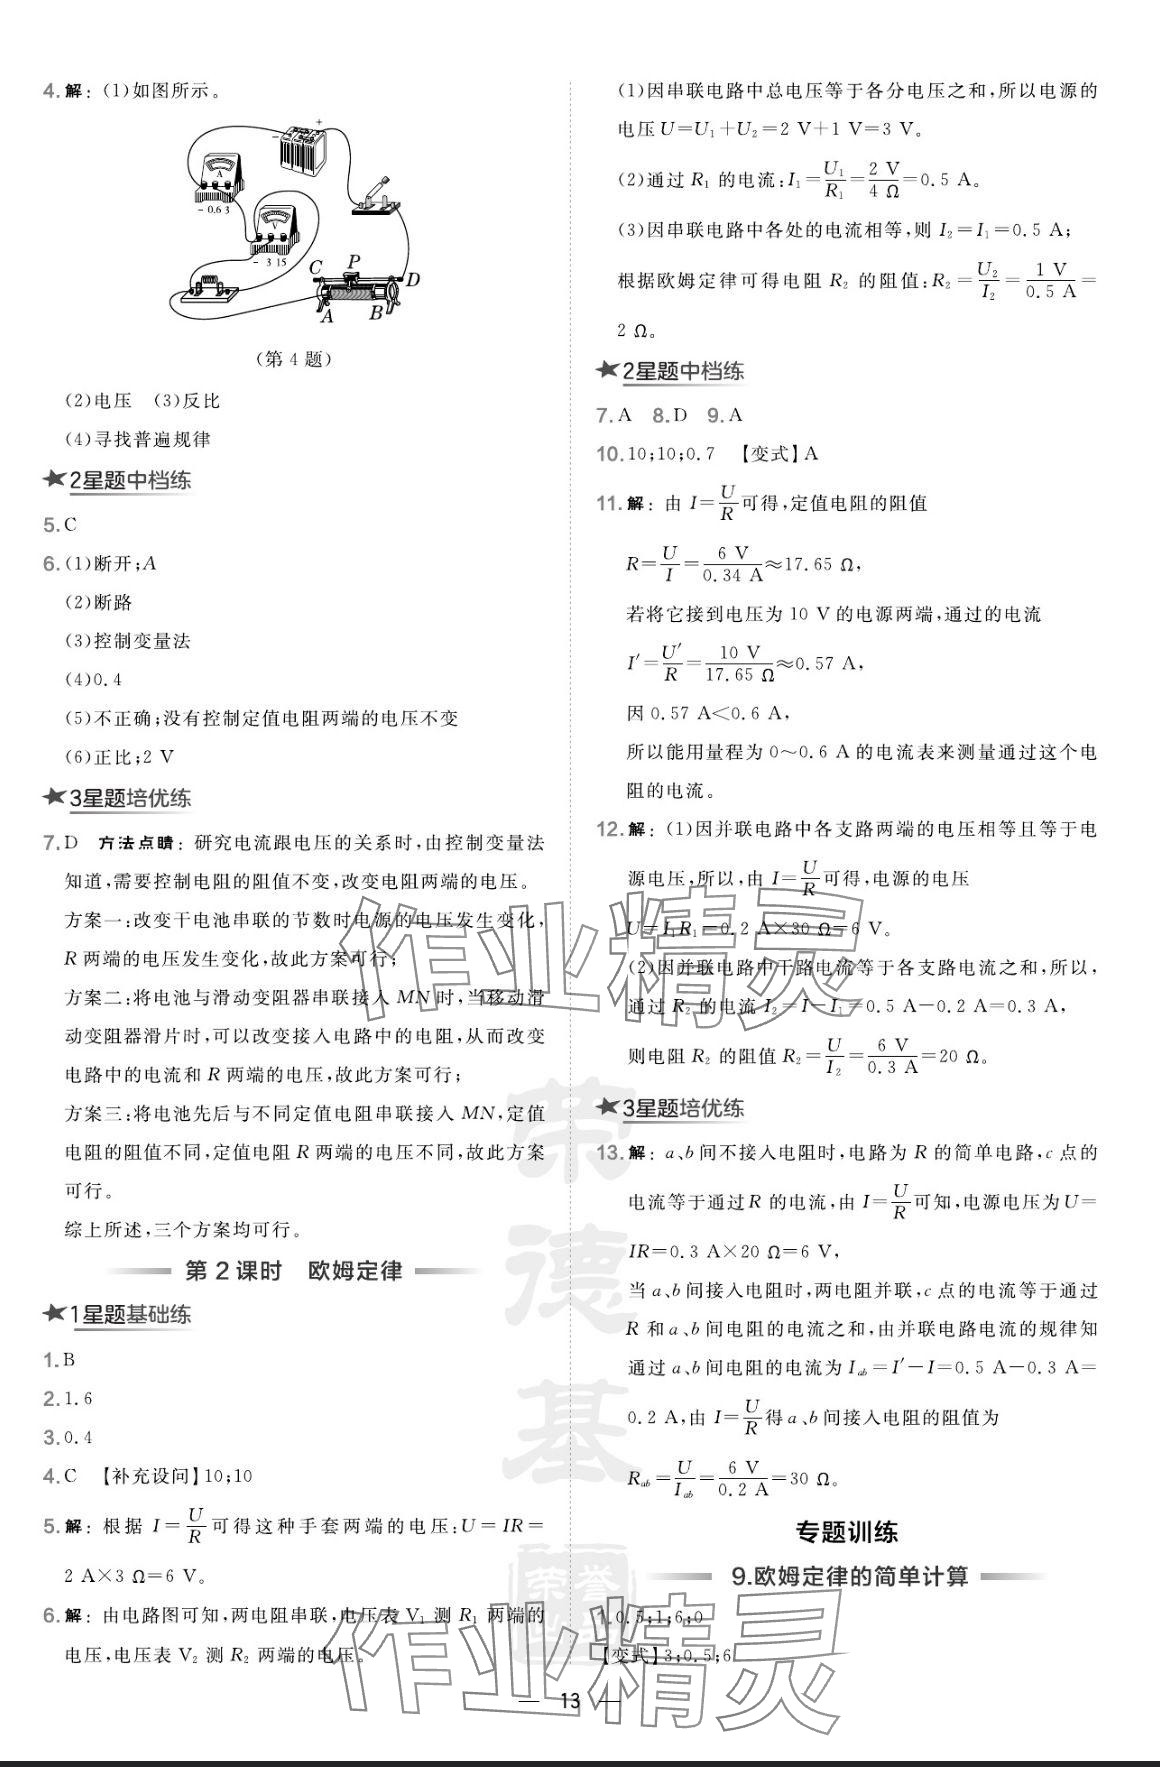 4.解：(1)如图所示。
+
-
A
- 0.6 3
V
- 3 15
C
P
D
A
B
(第 4 题)
(2)电压　(3)反比
(4)寻找普遍规律
★2星题中档练
5.C
6.(1)断开;A
(2)断路
(3)控制变量法
(4)0.4
(5)不正确;没有控制定值电阻两端的电压不变
(6)正比;2 V
★3星题培优练
7.D　方法点睛：研究电流跟电压的关系时,由控制变量法
知道,需要控制电阻的阻值不变,改变电阻两端的电压。
方案一:改变干电池串联的节数时电源的电压发生变化,
R两端的电压发生变化,故此方案可行;
方案二:将电池与滑动变阻器串联接入 MN时,当移动滑
动变阻器滑片时,可以改变接入电路中的电阻,从而改变
电路中的电流和 R 两端的电压,故此方案可行;
方案三:将电池先后与不同定值电阻串联接入 MN,定值
电阻的阻值不同,定值电阻 R 两端的电压不同,故此方案
可行。
综上所述,三个方案均可行。
第 2 课时　欧姆定律
★1星题基础练
1.B
2.1.6
3.0.4
4.C　【补充设问】10;10
5.解：根据 I=U/R可得这种手套两端的电压:U=IR=
2 A×3 Ω=6 V。
6.解：由电路图可知,两电阻串联,电压表 V₁ 测 R₁ 两端的
电压,电压表 V₂ 测 R₂ 两端的电压。
(1)因串联电路中总电压等于各分电压之和,所以电源的
电压U=U₁+U₂=2 V+1 V=3 V。
(2)通过 R₁ 的电流:I₁=U₁/R₁=2 V/4 Ω=0.5 A。
(3)因串联电路中各处的电流相等,则 I₂=I₁=0.5 A;
根据欧姆定律可得电阻 R₂ 的阻值:R₂=U₂/I₂=1 V/0.5 A=
2 Ω。
★2星题中档练
7.A　8.D　9.A
10.10;10;0.7　【变式】A
11.解：由 I=U/R可得,定值电阻的阻值
R=U/I=6 V/0.34 A≈17.65 Ω,
若将它接到电压为 10 V的电源两端,通过的电流
I′=U′/R=10 V/17.65 Ω≈0.57 A,
因 0.57 A<0.6 A,
所以能用量程为 0～0.6 A的电流表来测量通过这个电
阻的电流。
12.解：(1)因并联电路中各支路两端的电压相等且等于电
源电压,所以,由 I=U/R可得,电源的电压
U=I₁R₁=0.2 A×30 Ω=6 V。
(2)因并联电路中干路电流等于各支路电流之和,所以,
通过 R₂ 的电流 I₂=I-I₁=0.5 A-0.2 A=0.3 A,
则电阻 R₂ 的阻值 R₂=U/I₂=6 V/0.3 A=20 Ω。
★3星题培优练
13.解：a、b间不接入电阻时,电路为 R 的简单电路,c 点的
电流等于通过R 的电流,由 I=U/R可知,电源电压为U=
IR=0.3 A×20 Ω=6 V,
当 a、b间接入电阻时,两电阻并联,c 点的电流等于通过
R 和 a、b 间电阻的电流之和,由并联电路电流的规律知
通过 a、b 间电阻的电流为 I_ab=I′-I=0.5 A-0.3 A=
0.2 A,由 I=U/R得 a、b间接入电阻的阻值为
R_ab=U/I_ab=6 V/0.2 A=30 Ω。
专题训练
9.欧姆定律的简单计算
1.0.5;1;6;0
【变式】3;0.5;6
— 13 —
作业精灵
作业精灵
荣德基
荣誉